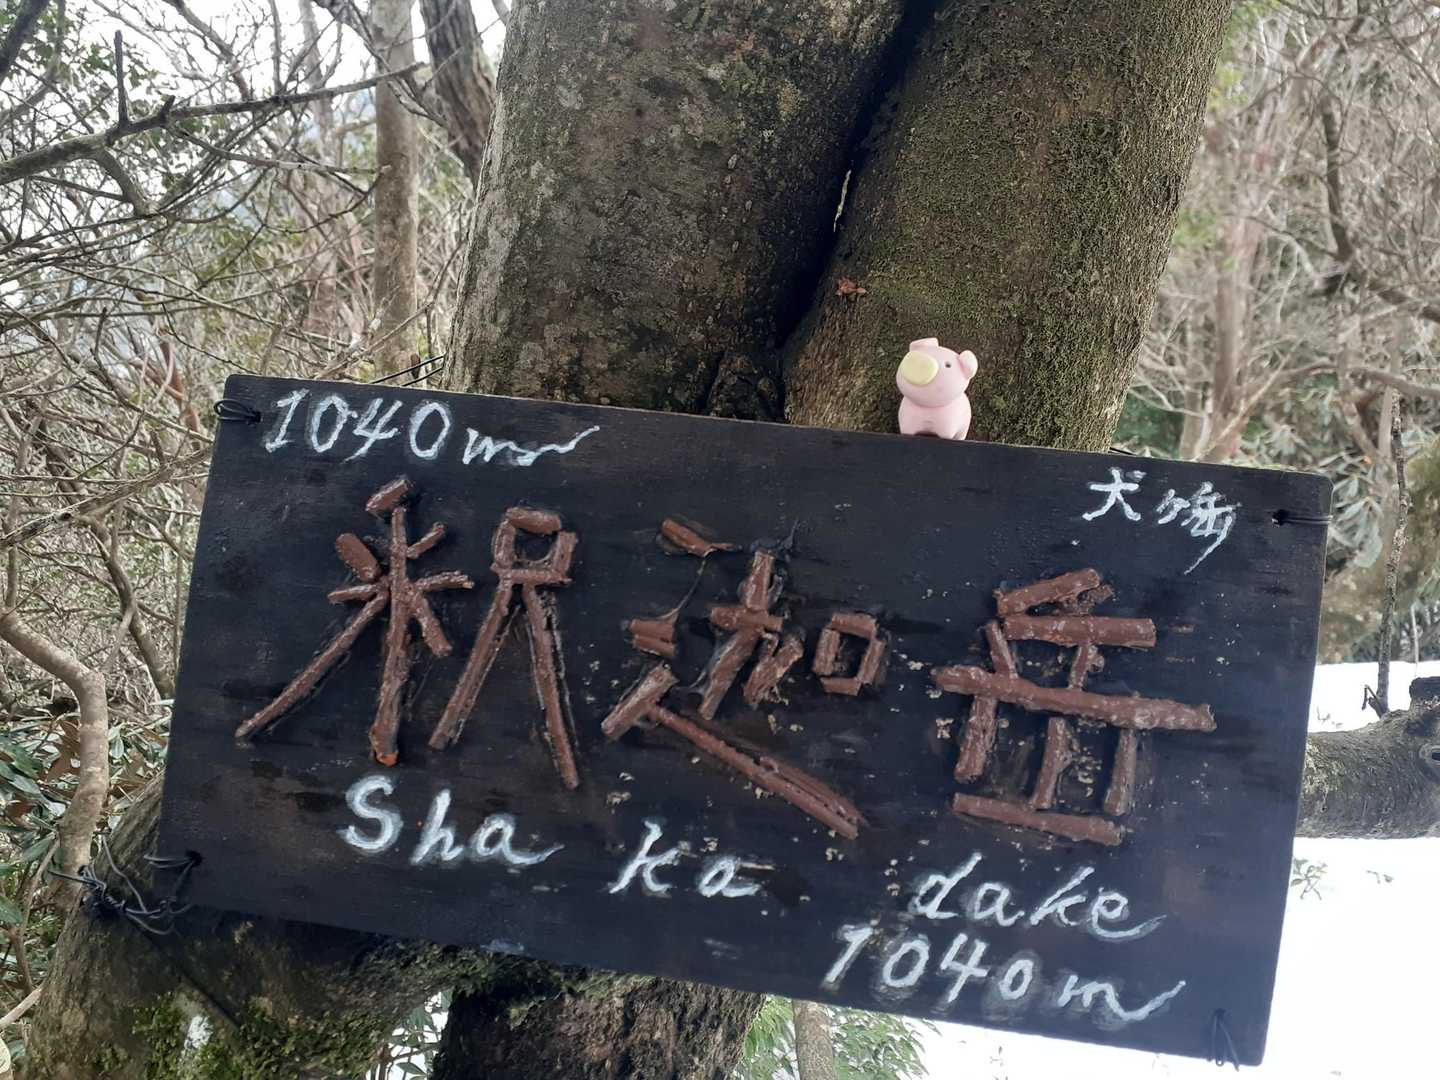 1040m
犬ヶ岳
釈迦岳
Sha ka dake
1040m